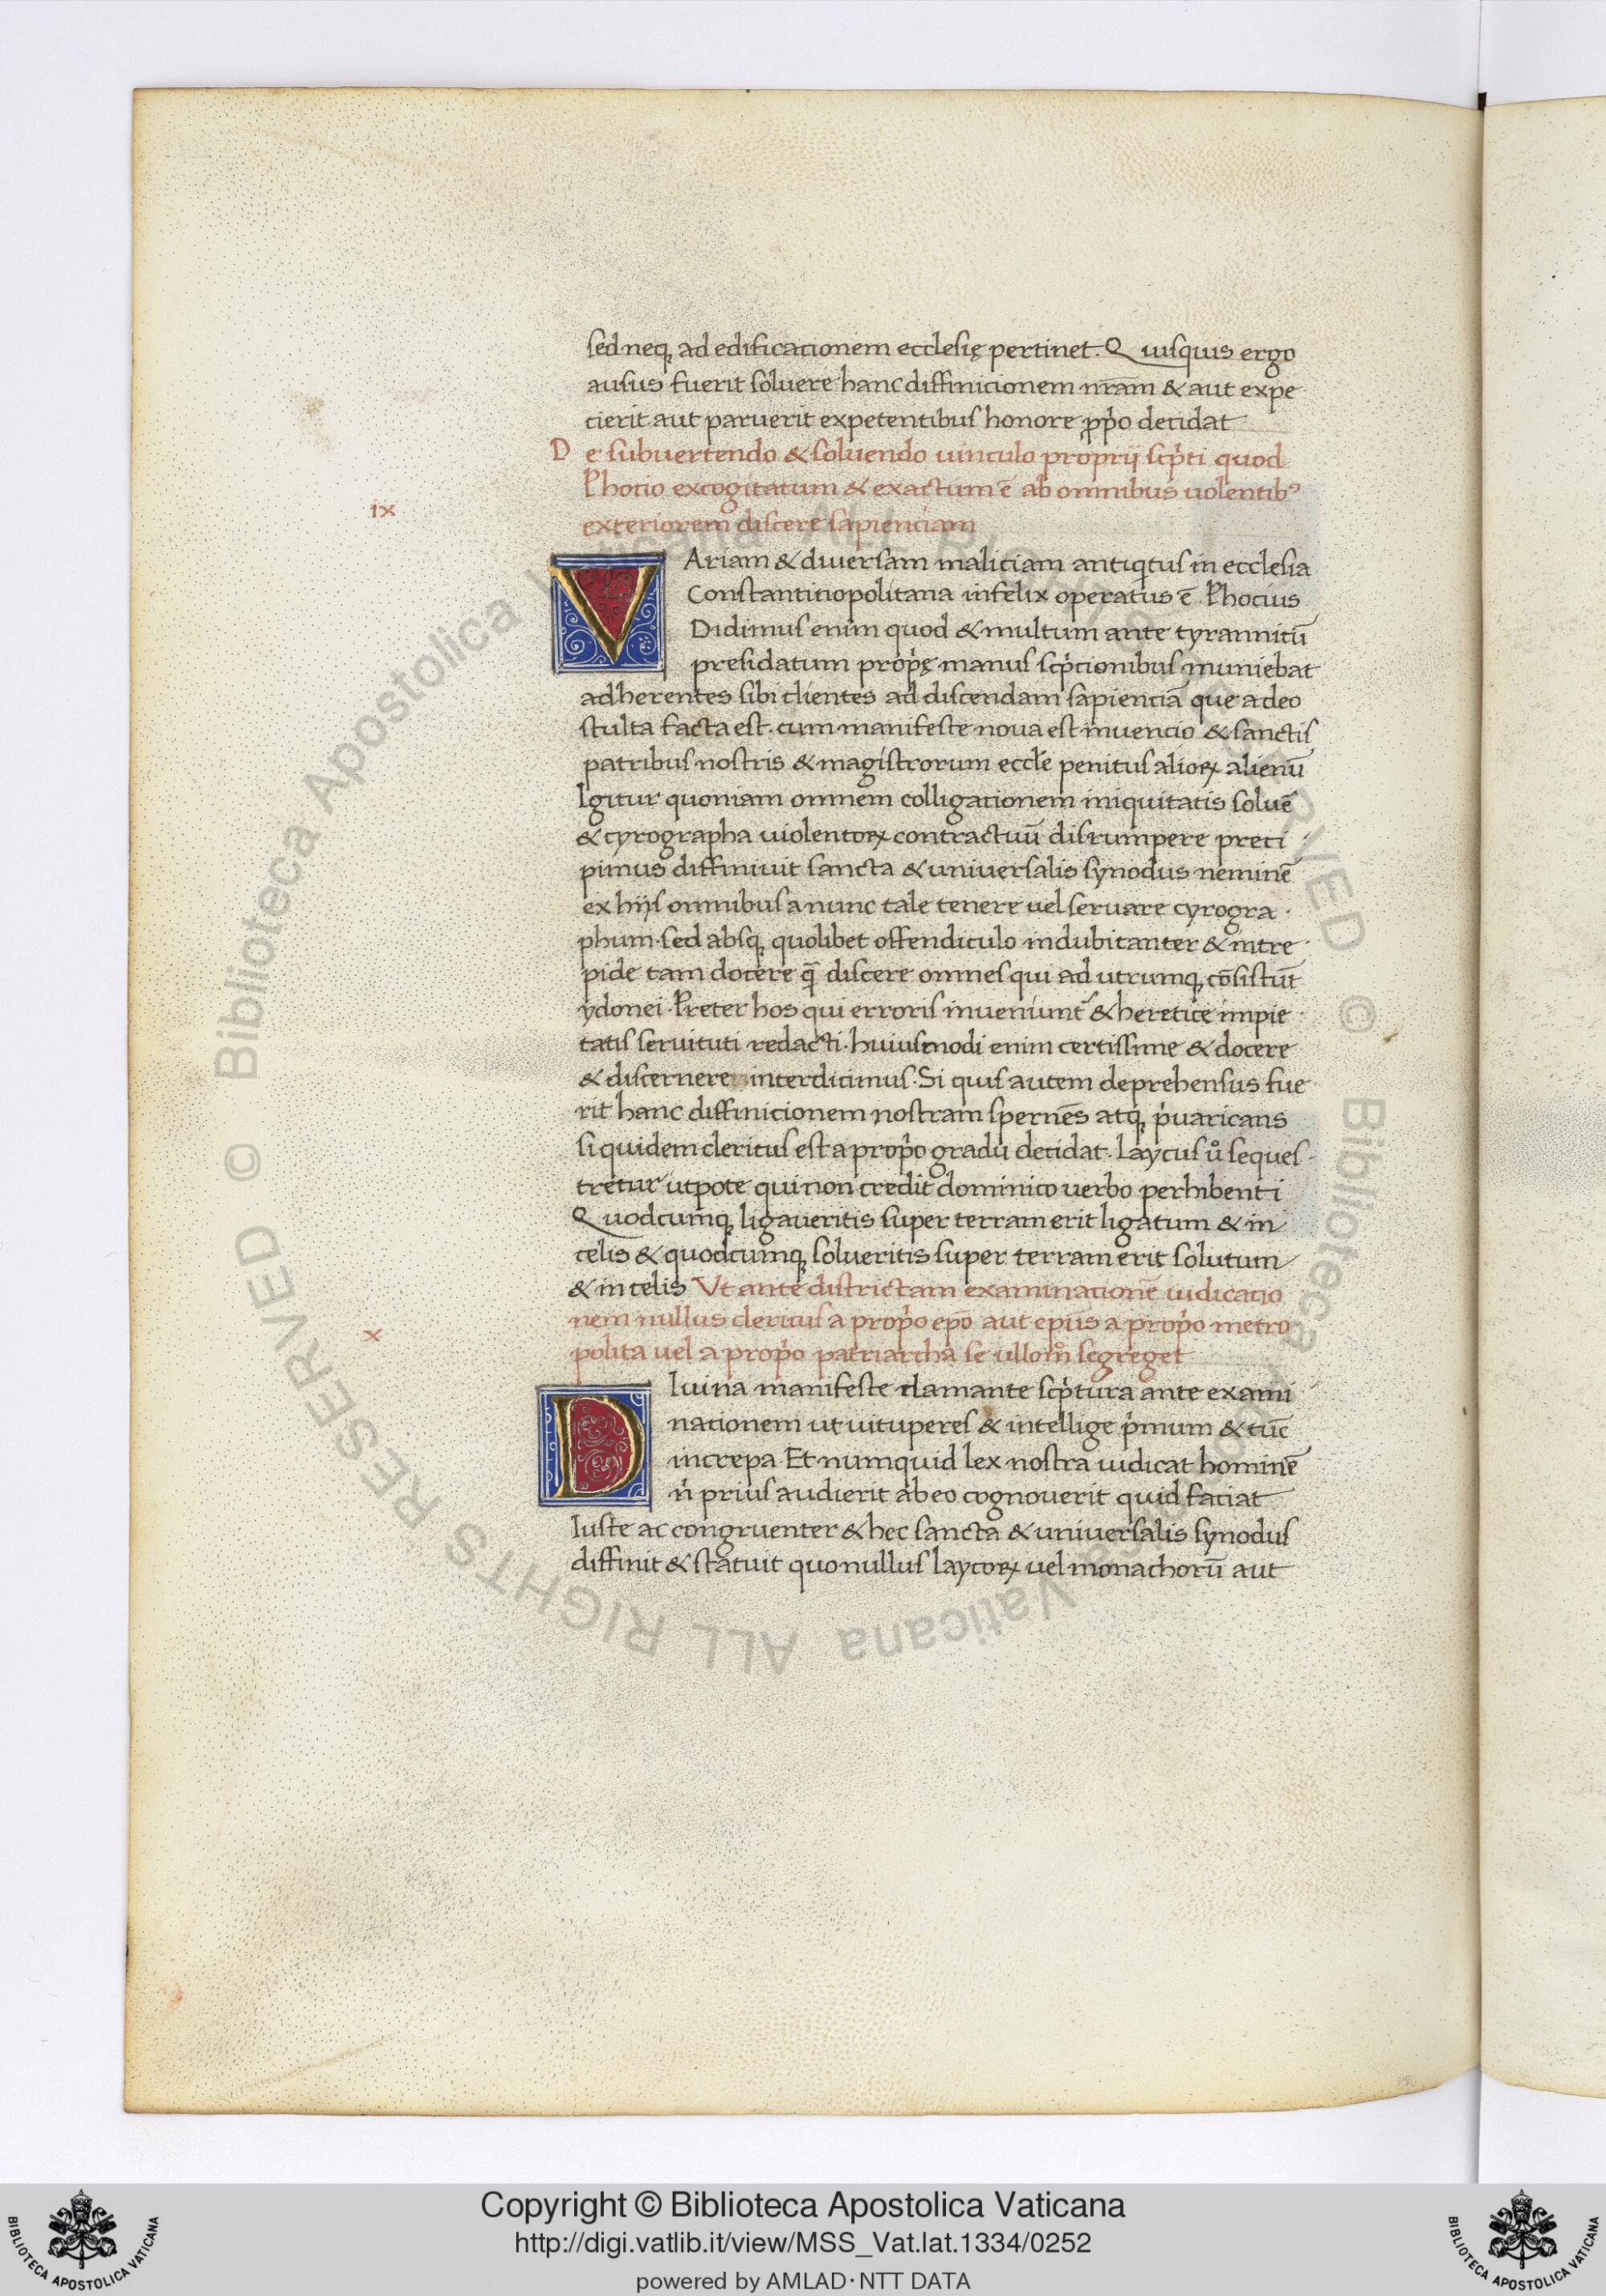 sed neq, ad edificacionem ecclesię pertinet. Quisquis ergo
ausus fuerit soluere hanc diffinicionem nr̄am & aut expe
cierit aut paruerit expetentibus honore ꝓp̍o decidat
De subuertendo & soluendo uinculo proprij scp̍ti quod
Photio excogitatum & exactum ē ab omnibus uolentibꝰ
ix
exteriorem discere sapienciam
VAriam & diuersam maliciam antiqitus in ecclesia
Constantinopolitana infelix operatus ē Phocius
Didimus enim quod & multum ante tyrannicū
presidatum prop̍ę manus scp̍tionibus muniebat
adherentes sibi clientes ad discendam sapienciā que adeo
stulta facta est. cum manifeste noua est inuencio & sanctis
patribus nostris & magistrorum eccle̅ penitus alioꝝ alienū
Igitur quoniam omnem colligationem iniquitatis soluē
& cyrographa uiolentoꝝ contractuū disrumpere preci
pimus diffiniuit sancta & uniuersalis synodus neminē
ex hijs omnibus a nunc tale tenere uel seruare cyrogra
phum. sed absq, quolibet offendiculo indubitanter & intre
pide tam docere q̄ discere omnes qui ad utrumq, cōsistūt
ydonei. Preter hos qui erroris inueniunt᷑ & heretice impie
tatis seruituti redacti. huiusmodi enim certissime & docere
& discernere interdicimus. Si quis autem deprehensus fue
rit hanc diffinicionem nostram spernēs atq, p̍uaricans
si quidem clericus est a prop̍o gradu decidat. Laycus ů seques
tretur utpote qui non credit dominico uerbo perhibenti
Quodcumq, ligaueritis super terram erit ligatum & in
celis & quodcumq, solueritis super terram erit solutum
& in celis Vt ante districtam examinationē iudicatio
x
nem nullus clericus a prop̍o ep̄o aut ep̄us a prop̍o metro
polita uel a prop̍o patriarcha se ullom̊ segreget
DIuina manifeste clamante scp̍tura ante exami
nationem ut uituperes & intellige p̍mum & tūc
increpa. Et numquid lex nostra iudicat hominē
n̍ prius audierit ab eo cognouerit quid faciat
Iuste ac congruenter & hec sancta & uniuersalis synodus
diffinit & statuit quo nullus laycoꝝ uel monachorū aut
© Biblioteca Apostolica Vaticana ALL RIGHTS RESERVED © Biblioteca Apostolica Vaticana ALL RIGHTS RESERVED
Copyright © Biblioteca Apostolica Vaticana
http://digi.vatlib.it/view/MSS_Vat.lat.1334/0252
powered by AMLAD·NTT DATA
BIBLIOTECA APOSTOLICA VATICANA
BIBLIOTECA APOSTOLICA VATICANA